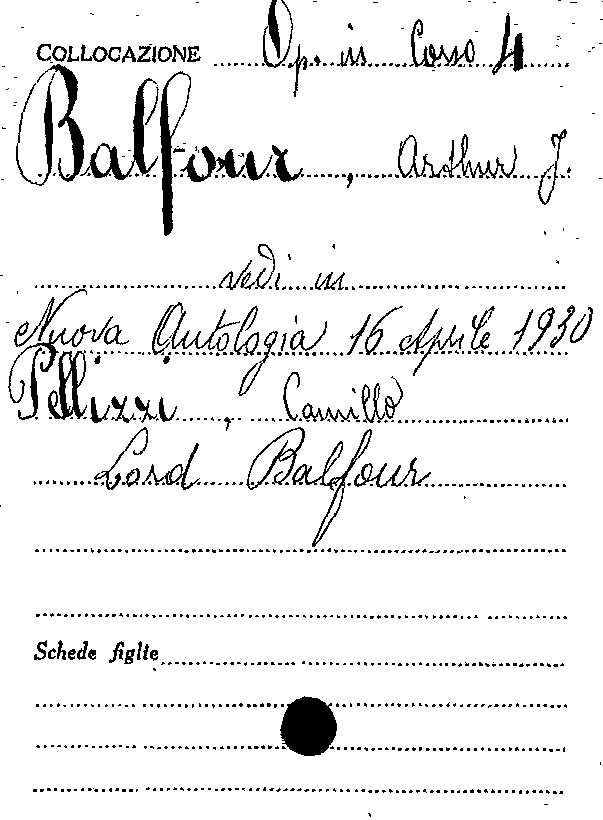 COLLOCAZIONE Op. in Corso 4
Balfour, Arthur J.
vedi in
Nuova Antologia 16 Aprile 1930
Pellizzi, Camillo
Lord Balfour
Schede figlie